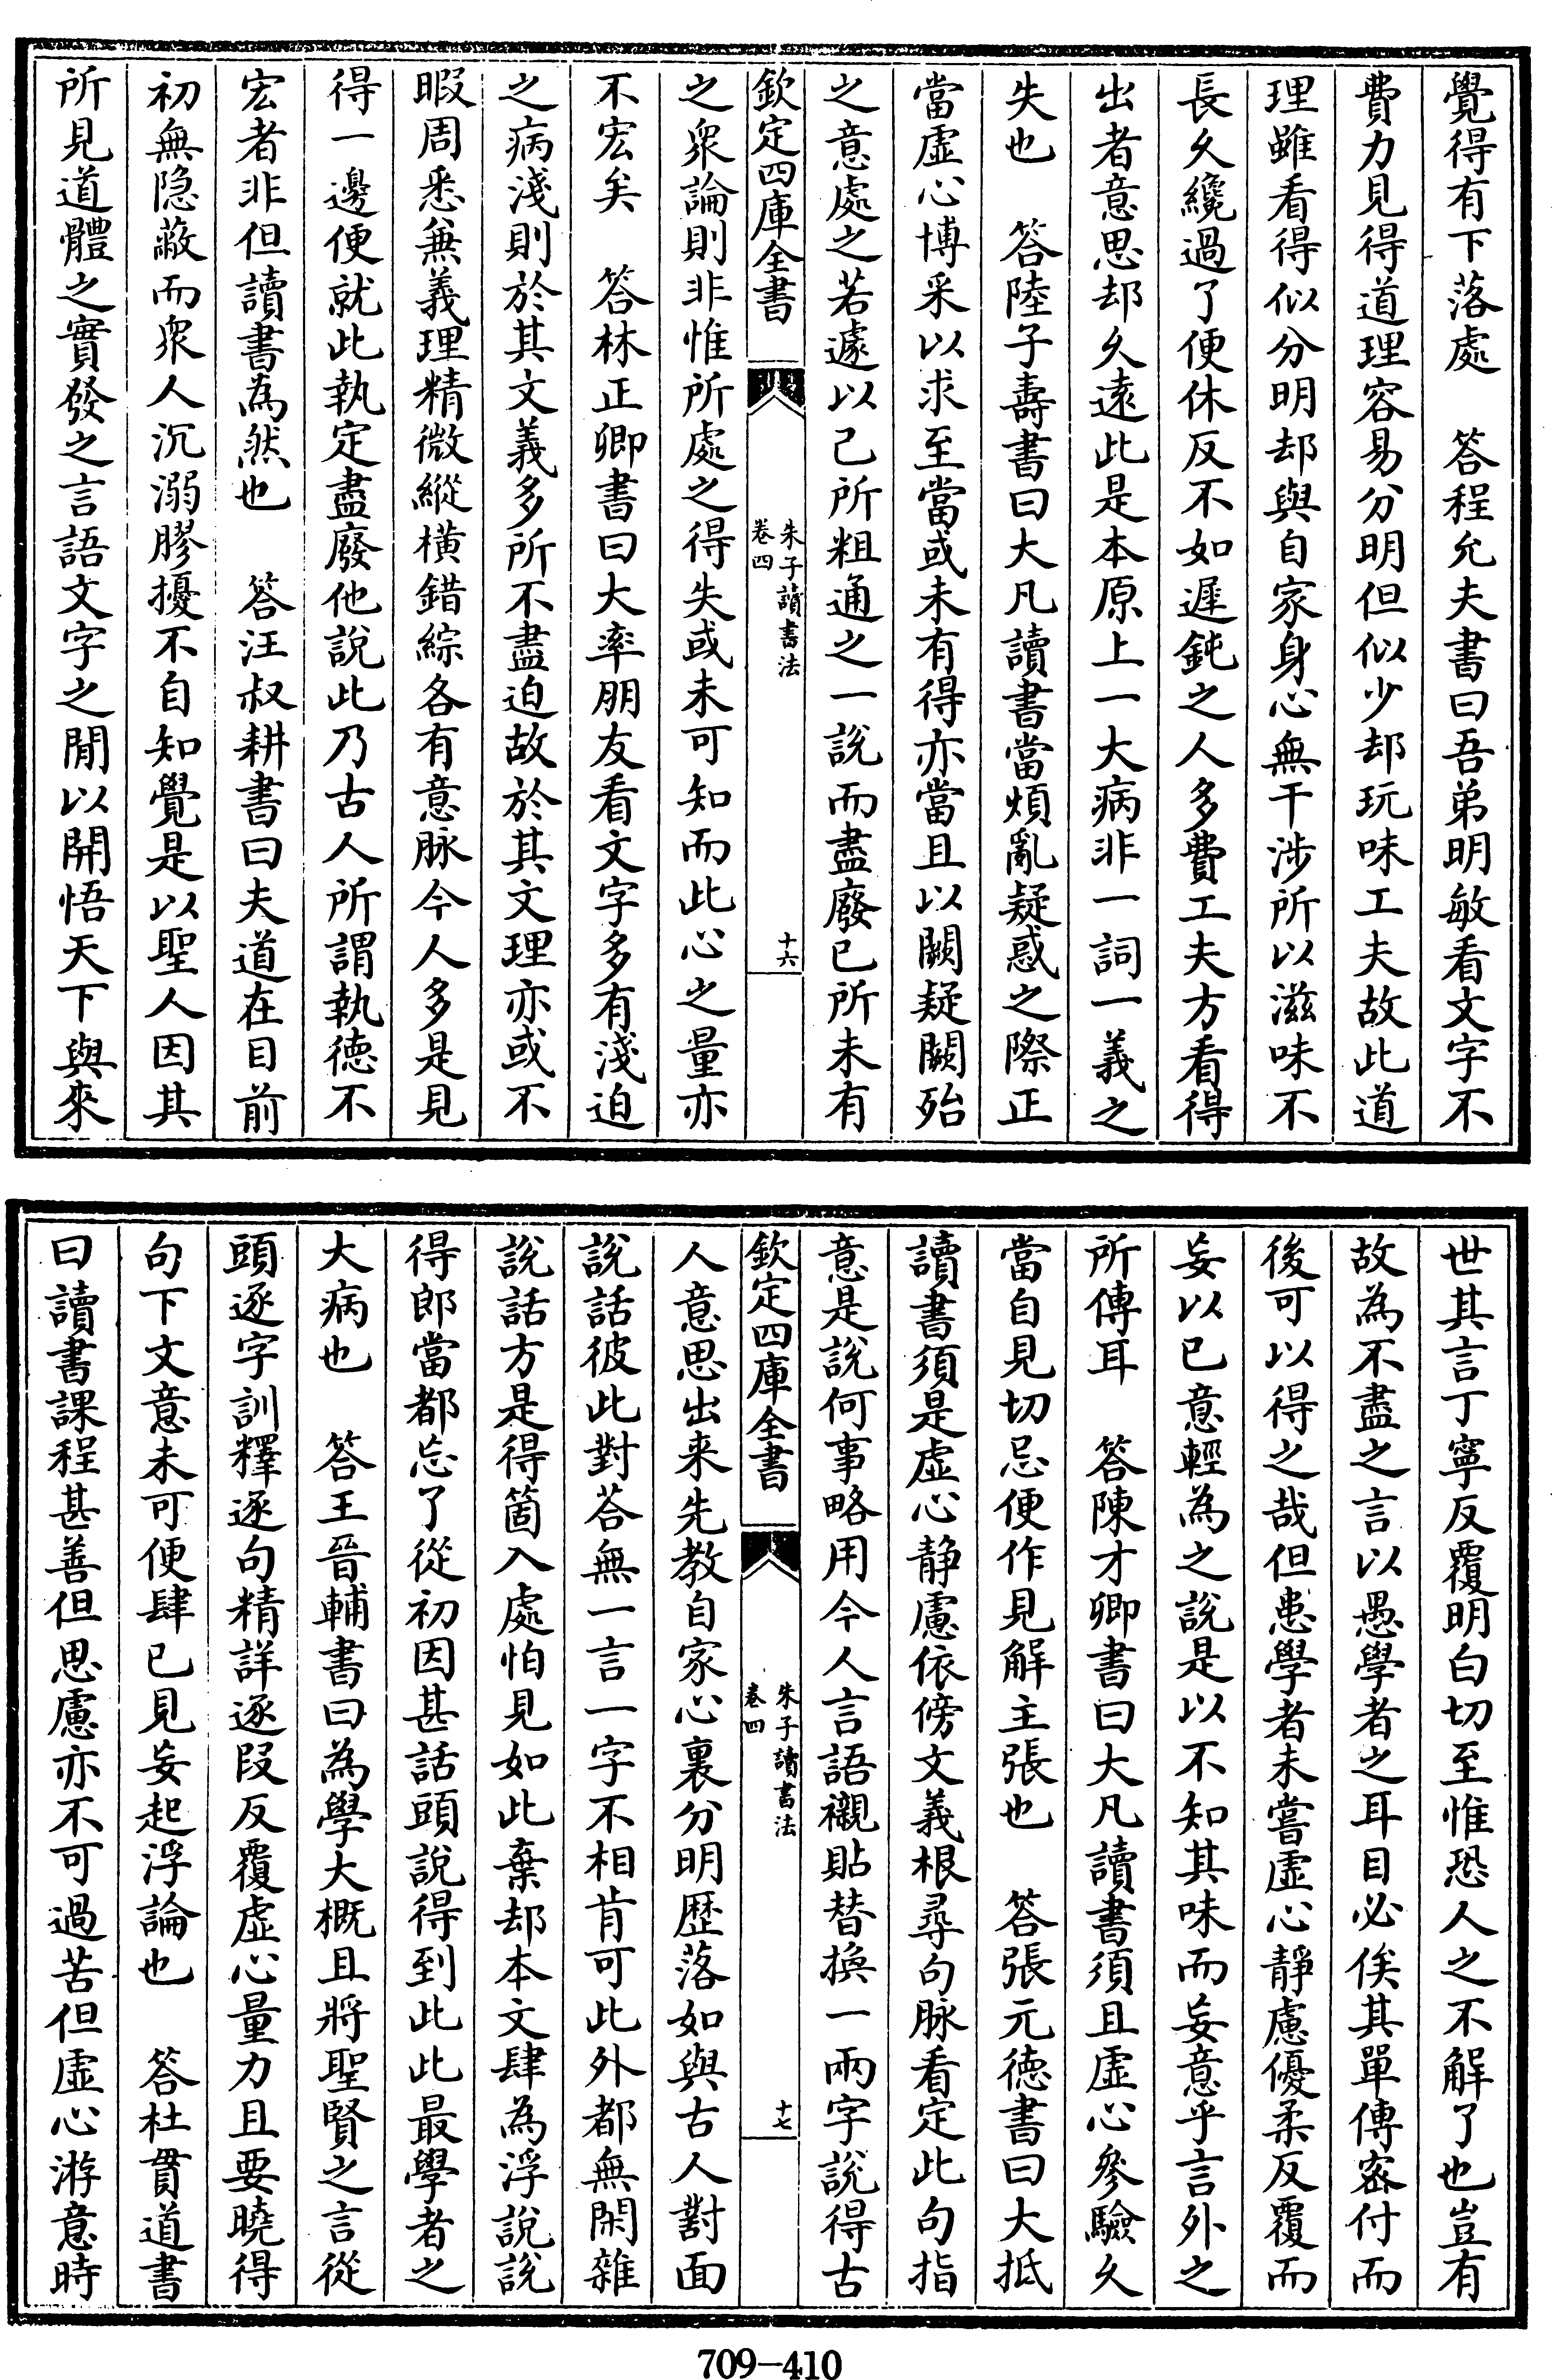 覺得有下落處　答程允夫書曰吾弟明敏看文字不
費力見得道理容易分明但似少却玩味工夫故此道
理雖看得似分明却與自家身心無干涉所以滋味不
長久纔過了便休反不如遲鈍之人多費工夫方看得
出者意思却久遠此是本原上一大病非一詞一義之
失也　答陸子壽書曰大凡讀書當煩亂疑惑之際正
當虛心博采以求至當或未有得亦當且以闕疑闕殆
之意處之若遽以己所粗通之一說而盡廢已所未有
欽定四庫全書
朱子讀書法
卷四
十六
之衆論則非惟所處之得失或未可知而此心之量亦
不宏矣　答林正卿書曰大率朋友看文字多有淺迫
之病淺則於其文義多所不盡迫故於其文理亦或不
暇周悉兼義理精微縱橫錯綜各有意脉今人多是見
得一邊便就此執定盡廢他說此乃古人所謂執德不
宏者非但讀書為然也　答汪叔耕書曰夫道在目前
初無隐蔽而衆人沉溺膠擾不自知覺是以聖人因其
所見道體之實發之言語文字之閒以開悟天下與來
世其言丁寧反覆明白切至惟恐人之不解了也豈有
故為不盡之言以愚學者之耳目必俟其單傳宻付而
後可以得之哉但患學者未嘗虛心靜慮優柔反覆而
妄以已意輕為之說是以不知其味而妄意乎言外之
所傳耳　答陳才卿書曰大凡讀書須且虛心參驗久
當自見切忌便作見解主張也　答張元德書曰大抵
讀書須是虛心静慮依傍文義根尋句脉看定此句指
意是說何事略用今人言語襯貼替換一兩字說得古
欽定四庫全書
朱子讀書法
卷四
十七
人意思出来先教自家心裏分明歷落如與古人對面
說話彼此對荅無一言一字不相肯可此外都無閑雜
說話方是得箇入處怕見如此棄却本文肆為浮說說
得郎當都忘了從初因甚話頭說得到此此最學者之
大病也　答王晉輔書曰為學大概且將聖賢之言從
頭逐字訓釋逐句精詳逐段反覆虛心量力且要曉得
句下文意未可便肆已見妄起浮論也　答杜貫道書
曰讀書課程甚善但思慮亦不可過苦但虛心游意時
709-410